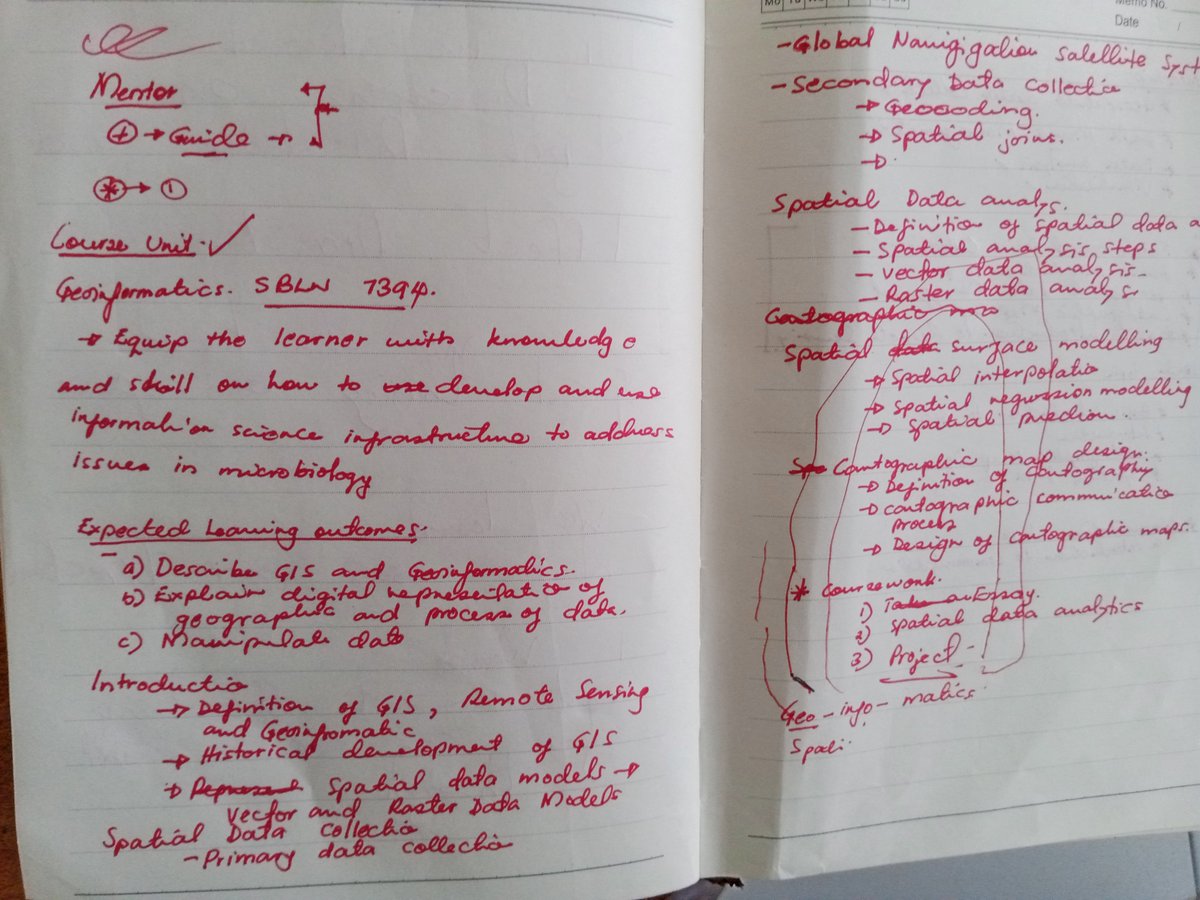 Mentor
+ → Guide →
* → 1
Course Unit.
Geoinformatics. SBLN 7394.
→ Equip the learner with knowledge
and skill on how to use develop and use
information science infrastructure to address
issues in microbiology
Expected Learning outcomes.
a) Describe GIS and Geoinformatics.
b) Explain digital representation of
geographic and process of data.
c) Manipulate data
Introductio
→ Definition of GIS, Remote Sensing
and Geoinfromatic
→ Historical development of GIS
→ Represent Spatial data models →
Vector and Raster Data Models
Spatial Data Collectio
- Primary data collectio
Memo No.
Date /
- Global Navigigation Satellite Syst
- Secondary Data collectio
→ Geocoding.
→ Spatial joins.
→
Spatial Data analys.
- Definition of spatial data a
- Spatial analysis steps
- Vector data analysis-
- Raster data analys
Cartographic ma
Spatial data surface modelling
→ Spatial interpolatio
→ Spatial regression modelling
→ Spatial prediction.
Spa Cartographic map design.
→ Definition of Cartography
→ Cartographic communicatio
process
→ Design of Cartographic maps.
* Coursework.
1) Take an Essay.
2) Spatial data analytics
3) Project -
Geo - info - matics
Spati